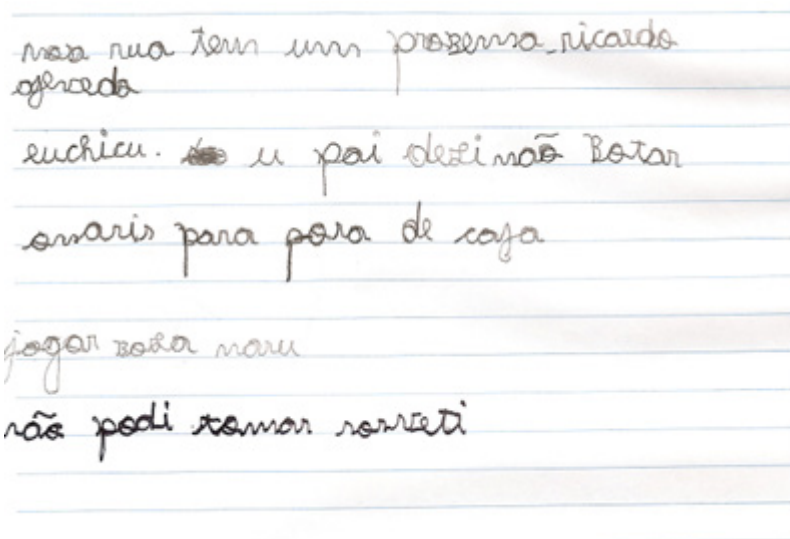 nosa rua tem um prosema ricardo
azevedo
euchicu. u pai dezi não Botar
onaris para fora de casa
jogar bola naru
não podi tomar sorveti